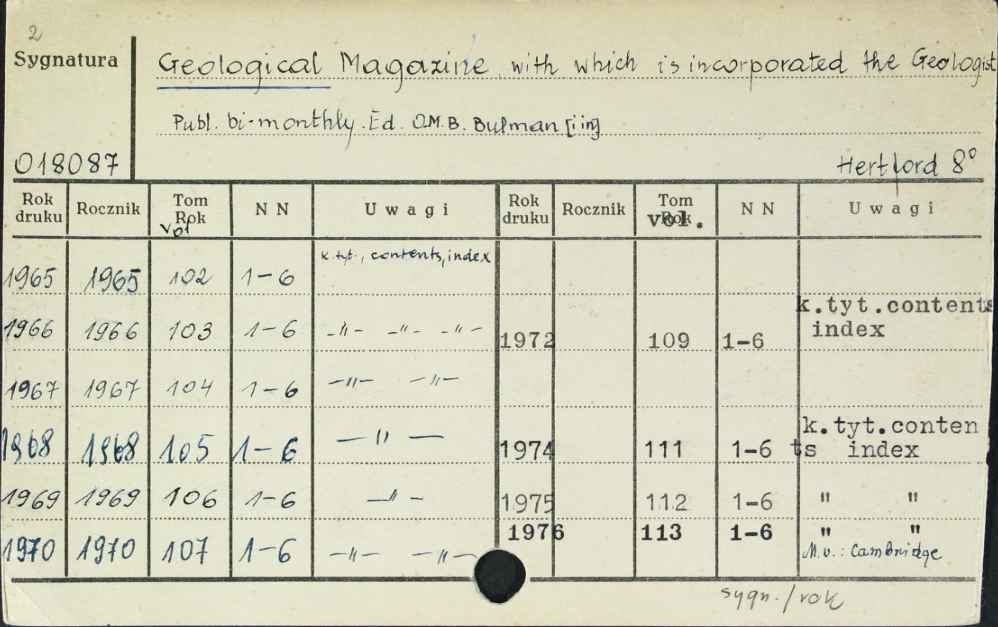 2
Sygnatura Geological Magazine with which is incorporated the Geologist
Publ. bi-monthly. Ed. O.M.B. Bulman [i in]
018087 Hertford 8°
Rok druku Rocznik Tom Rok vol N N Uwagi Rok druku Rocznik Tom Rok vol. N N Uwagi
1965 1965 102 1-6 k. tyt., contents, index
1966 1966 103 1-6 -"- -"- -"- 1972 109 1-6 k.tyt.contents index
1967 1967 104 1-6 -"- -"-
1968 1968 105 1-6 -"- 1974 111 1-6 k.tyt.contents index
1969 1969 106 1-6 -"- 1975 112 1-6 " "
1970 1970 107 1-6 -"- -"- 1976 113 1-6 " "
M. v.: Cambridge
sygn./rok